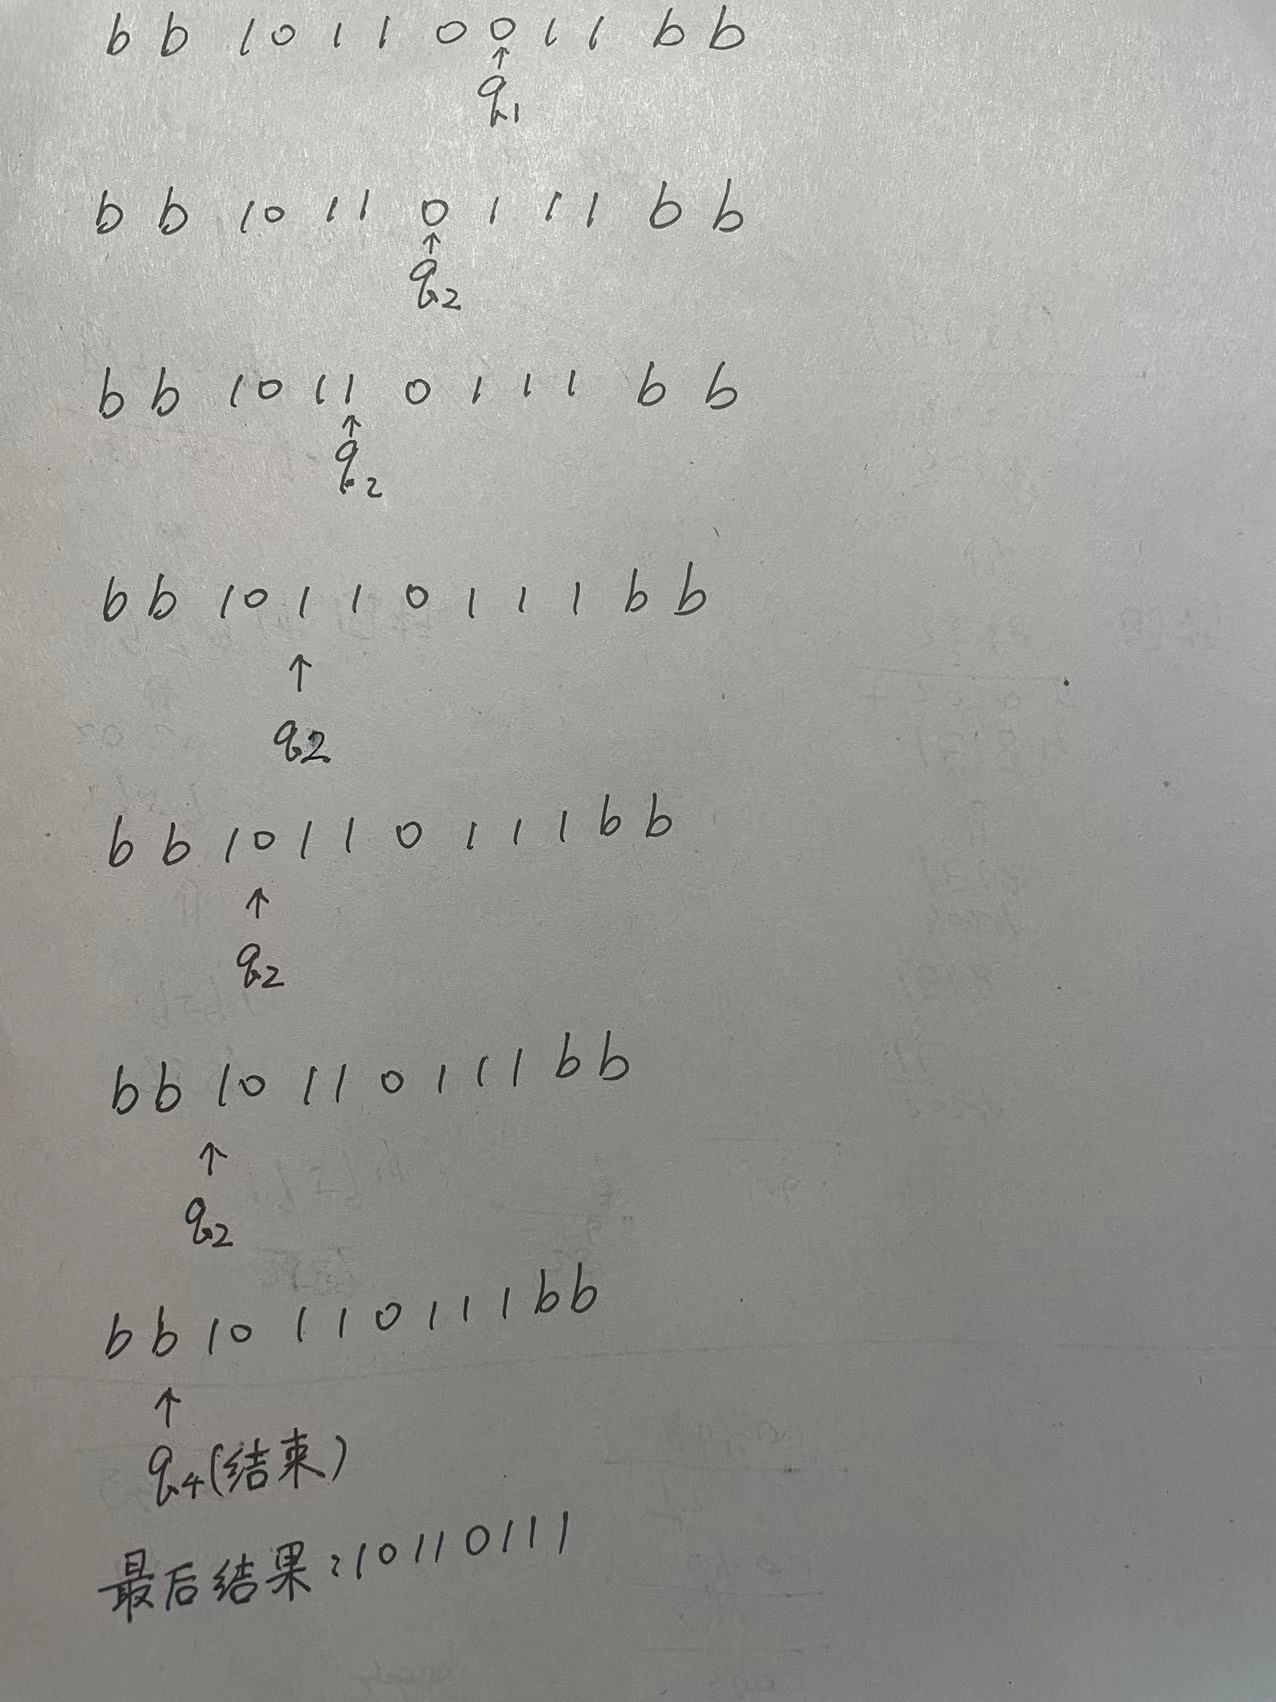 b b 1 0 1 1 0 0 1 1 b b
↑
q1
b b 1 0 1 1 0 1 1 1 b b
↑
q2
b b 1 0 1 1 0 1 1 1 b b
↑
q2
b b 1 0 1 1 0 1 1 1 b b
↑
q2
b b 1 0 1 1 0 1 1 1 b b
↑
q2
b b 1 0 1 1 0 1 1 1 b b
↑
q2
b b 1 0 1 1 0 1 1 1 b b
↑
q4(结束)
最后结果:10110111